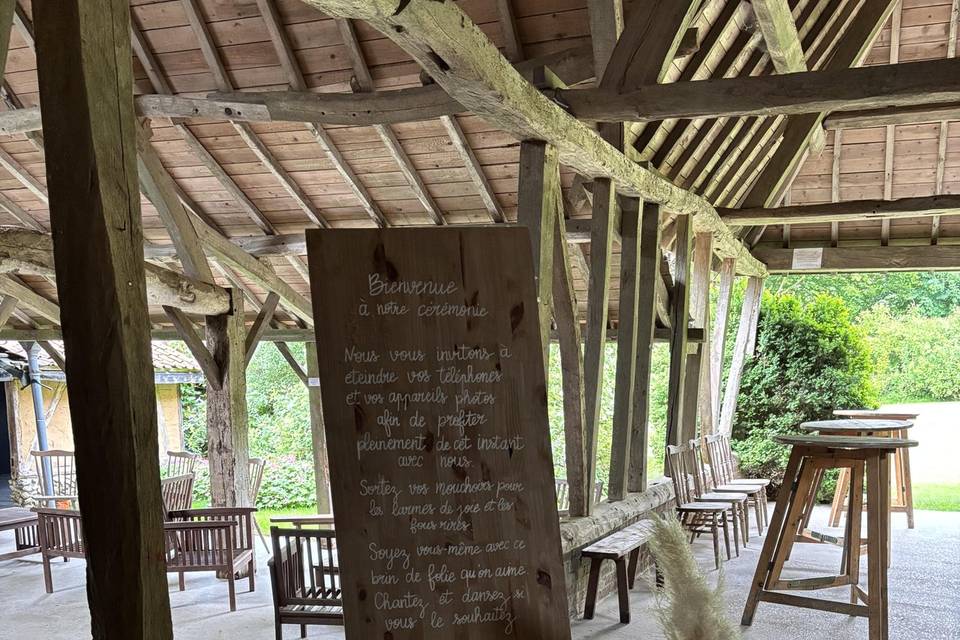 Bienvenue
à notre cérémonie
Nous vous invitons à
éteindre vos téléphones
et vos appareils photos
afin de profiter
pleinement de cet instant
avec nous.
Sortez vos mouchoirs pour
les larmes de joie et les
fous rires.
Soyez vous-même avec ce
brin de folie qu'on aime.
Chantez et dansez si
vous le souhaitez